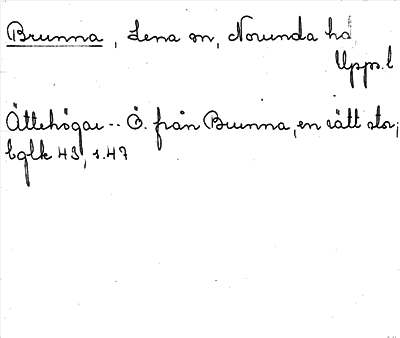 Brunna, Lena sn, Norunda hd
Upps. l
Ättehögar -- Ö. från Brunna, en rätt stor;
bglk 43, s. 47